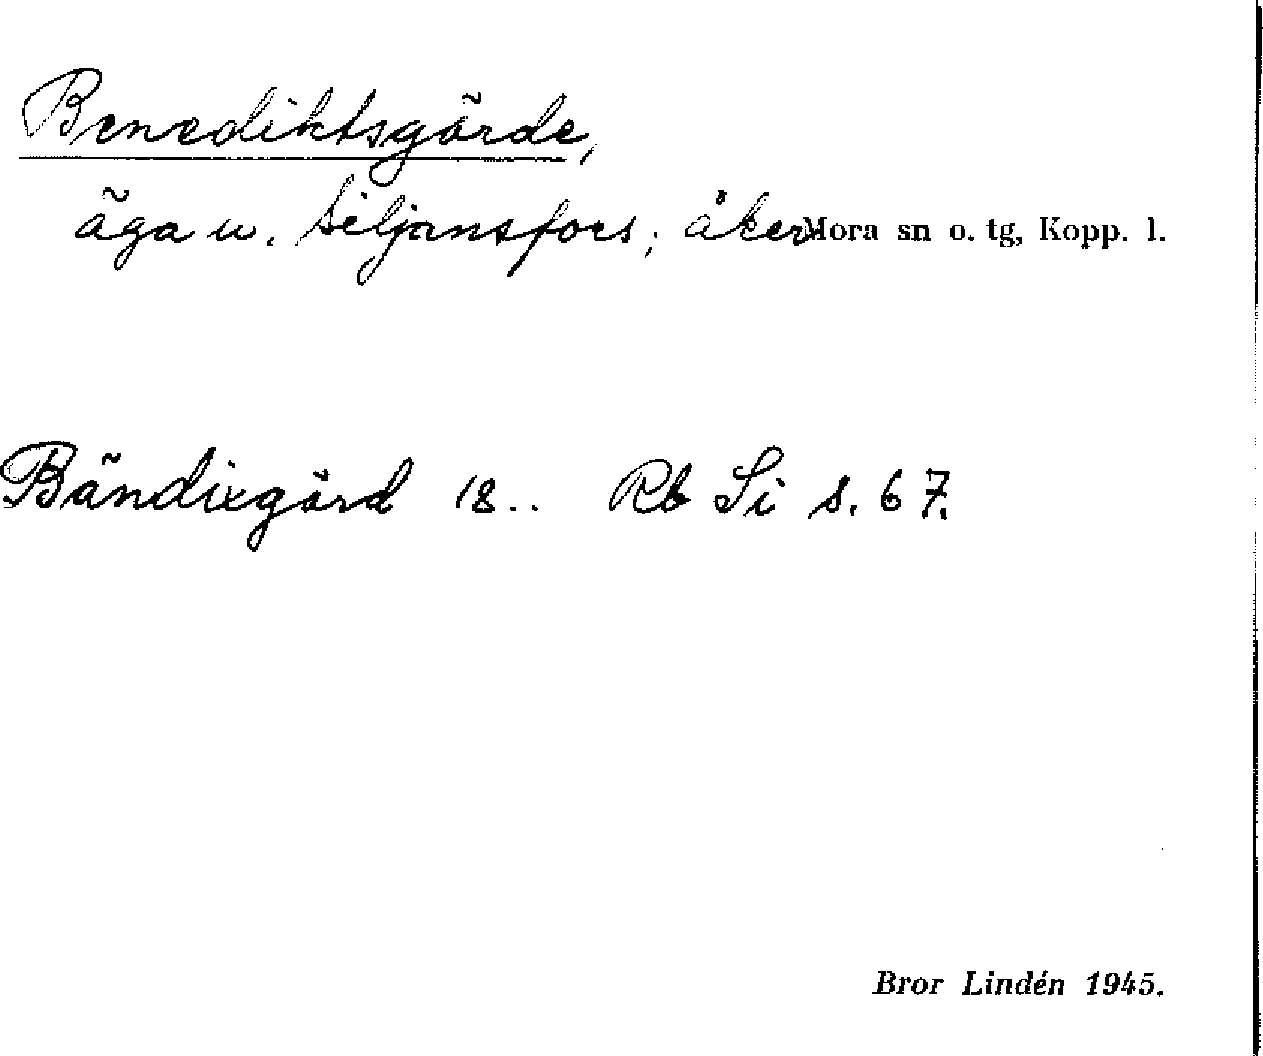 Benediktsgärde,
äga u. Siljansfors; åker Mora sn o. tg, Kopp. l.
Bändixgärd 18.. Rb Si s. 67.
Bror Lindén 1945.